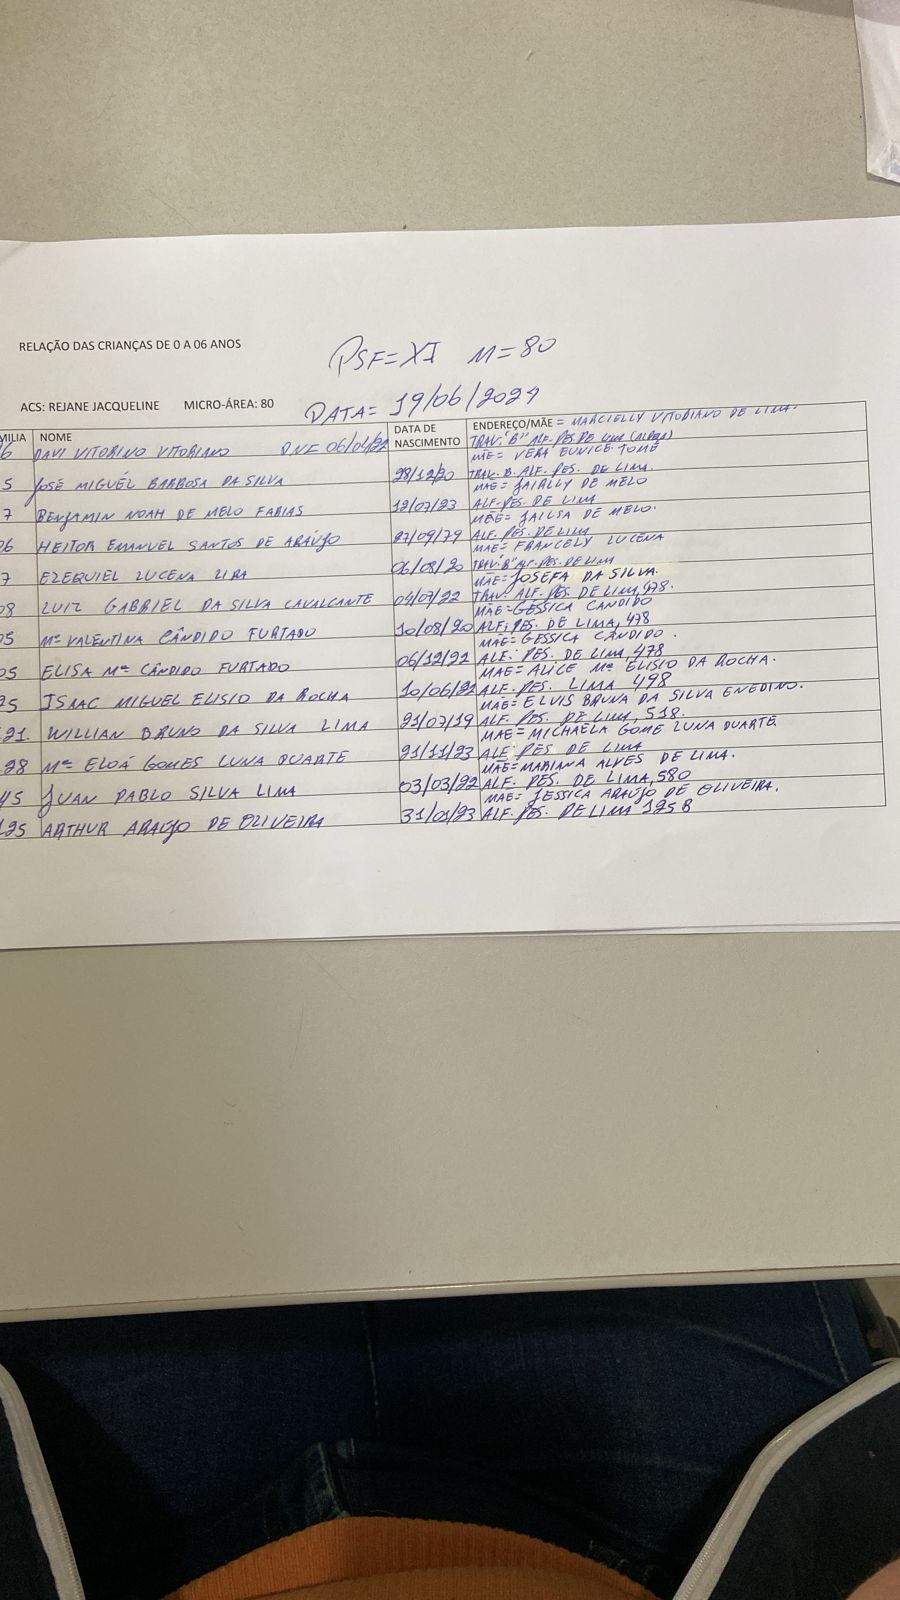 RELAÇÃO DAS CRIANÇAS DE 0 A 06 ANOS
PSF=XI M=80
ACS: REJANE JACQUELINE MICRO-ÁREA: 80
DATA= 19/06/2024
MILIA NOME DATA DE NASCIMENTO ENDEREÇO/MÃE = MARCIELLY VITORIANO DE LIMA.
6 DAVI VITORINO VITORIANO DNE 06/04/22 TRAV. "B" ALF. PES. DE LIMA
MÃE = VERA EUNICE TOMÉ
5 JOSÉ MIGUÉL BARBOSA DA SILVA 28/12/20 TRAV. B. ALF. PES. DE LIMA.
MÃE = JAIRLLY DE MELO
7 BENJAMIN NOAH DE MELO FARIAS 12/07/23 ALF. PES. DE LIMA
MÃE = JAILSA DE MELO.
06 HEITOR EMANUEL SANTOS DE ARAÚJO 27/09/79 ALF. PES. DE LIMA
MÃE = FRANCELY LUCENA
7 EZEQUIEL LUCENA LIRA 06/08/20 TRAV. "B" ALF. PES. DE LIMA
MÃE = JOSEFA DA SILVA.
08 LUIZ GABRIEL DA SILVA CAVALCANTE 04/07/22 TRAV. ALF. PES. DE LIMA, 478.
MÃE = GÉSSICA CANDIDO
05 Mª VALENTINA CÂNDIDO FURTADO 10/08/20 ALF. PES. DE LIMA, 478
MÃE = GÉSSICA CÂNDIDO.
05 ELISA Mª CÂNDIDO FURTADO 06/12/22 ALF. PES. DE LIMA, 478
MÃE = ALICE Mª ELISIO DA ROCHA.
25 ISAAC MIGUEL ELISIO DA ROCHA 10/06/22 ALF. PES. LIMA 498
MÃE = ELVIS BRUNA DA SILVA ENEDINO.
21. WILLIAN BRUNO DA SILVA LIMA 21/07/19 ALF. PES. DE LIMA, 518.
MÃE = MICHAELA GOME LUNA DUARTE
28 Mª ELOÁ GOMES LUNA DUARTE 21/11/23 ALF. PES DE LIMA
MÃE = MARIANA ALVES DE LIMA.
45 JUAN PABLO SILVA LIMA 03/03/22 ALF. PES. DE LIMA, 580
MÃE = JESSICA ARAÚJO DE OLIVEIRA.
125 ARTHUR ARAÚJO DE OLIVEIRA 31/01/23 ALF. PES. DE LIMA 125 B